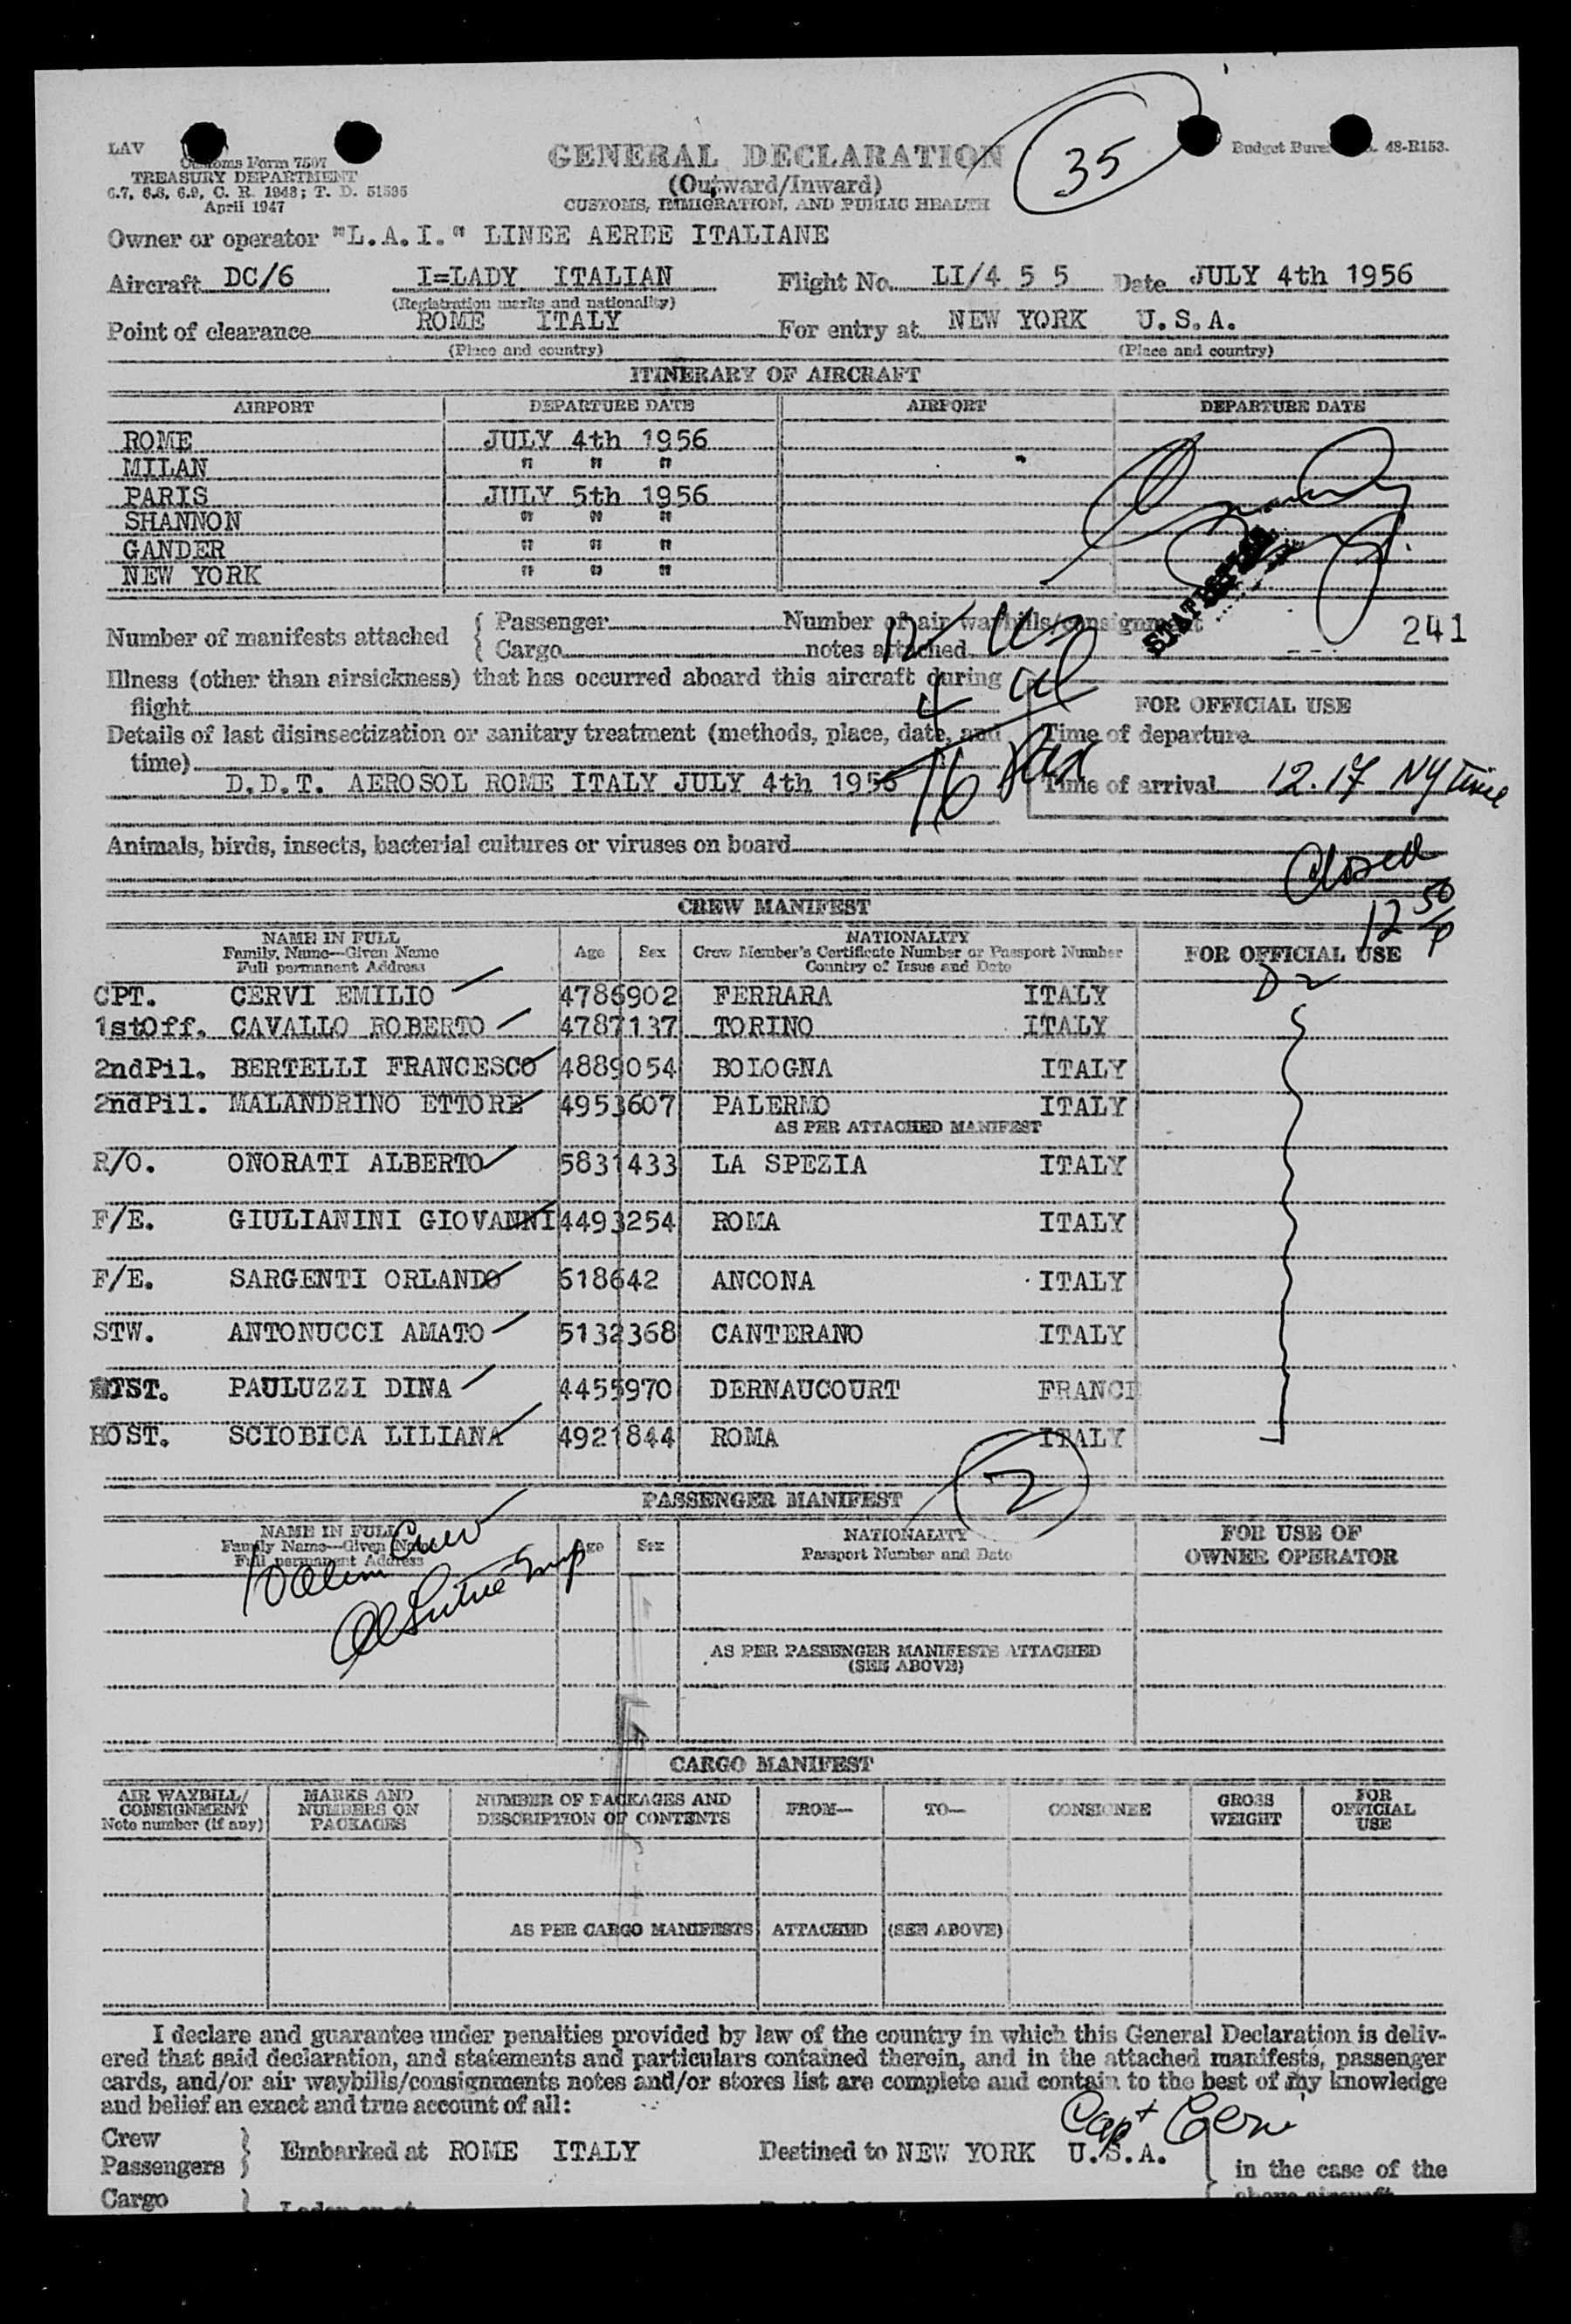 LAV
Customs Form 7507
TREASURY DEPARTMENT
6.7, 6.8, 6.9, C. R. 1943; T. D. 51535
April 1947
GENERAL DECLARATION
(Outward/Inward)
CUSTOMS, IMMIGRATION, AND PUBLIC HEALTH
35
Budget Bure 48-R153.
Owner or operator "L.A.I." LINEE AEREE ITALIANE
Aircraft DC/6 I=LADY ITALIAN Flight No. LI/4 5 5 Date JULY 4th 1956
(Registration marks and nationality)
Point of clearance ROME ITALY For entry at NEW YORK U.S.A.
(Place and country) (Place and country)
ITINERARY OF AIRCRAFT
AIRPORT DEPARTURE DATE AIRPORT DEPARTURE DATE
ROME JULY 4th 1956
MILAN " " "
PARIS JULY 5th 1956
SHANNON " " "
GANDER " " "
NEW YORK " " "
Number of manifests attached { Passenger Number of air waybills/consignment
Cargo notes attached
241
12 US
4 al
16 pax
Illness (other than airsickness) that has occurred aboard this aircraft during
flight
Details of last disinsectization or sanitary treatment (methods, place, date, and
time)
D.D.T. AEROSOL ROME ITALY JULY 4th 1956
FOR OFFICIAL USE
Time of departure
Time of arrival 12.17 NY Time
Animals, birds, insects, bacterial cultures or viruses on board
Closed
12 50 P
CREW MANIFEST
NAME IN FULL
Family, Name—Given Name
Full permanent Address
Age Sex
NATIONALITY
Crew Member's Certificate Number or Passport Number
Country of Issue and Date
FOR OFFICIAL USE
D 2
CPT. CERVI EMILIO 4786902 FERRARA ITALY
1stOff. CAVALLO ROBERTO 4787137 TORINO ITALY
2ndPil. BERTELLI FRANCESCO 4889054 BOLOGNA ITALY
2ndPil. MALANDRINO ETTORE 4953607 PALERMO ITALY
AS PER ATTACHED MANIFEST
R/O. ONORATI ALBERTO 5831433 LA SPEZIA ITALY
F/E. GIULIANINI GIOVANNI 4493254 ROMA ITALY
F/E. SARGENTI ORLANDO 618642 ANCONA ITALY
STW. ANTONUCCI AMATO 5132368 CANTERANO ITALY
TST. PAULUZZI DINA 4455970 DERNAUCOURT FRANCE
HOST. SCIOBICA LILIANA 4921844 ROMA ITALY
2
PASSENGER MANIFEST
NAME IN FULL
Family Name—Given Name
Full permanent Address
Age Sex
NATIONALITY
Passport Number and Date
FOR USE OF
OWNER OPERATOR
10 alien Crew
AS PER PASSENGER MANIFESTS ATTACHED
(SEE ABOVE)
CARGO MANIFEST
AIR WAYBILL/
CONSIGNMENT
Note number (if any)
MARKS AND
NUMBERS ON
PACKAGES
NUMBER OF PACKAGES AND
DESCRIPTION OF CONTENTS
FROM— TO— CONSIGNEE
GROSS
WEIGHT
FOR
OFFICIAL
USE
AS PER CARGO MANIFESTS ATTACHED (SEE ABOVE)
I declare and guarantee under penalties provided by law of the country in which this General Declaration is deliv-
ered that said declaration, and statements and particulars contained therein, and in the attached manifests, passenger
cards, and/or air waybills/consignments notes and/or stores list are complete and contain to the best of my knowledge
and belief an exact and true account of all:
Capt Cervi
Crew
Passengers } Embarked at ROME ITALY Destined to NEW YORK U.S.A.
in the case of the
Cargo
above aircraft